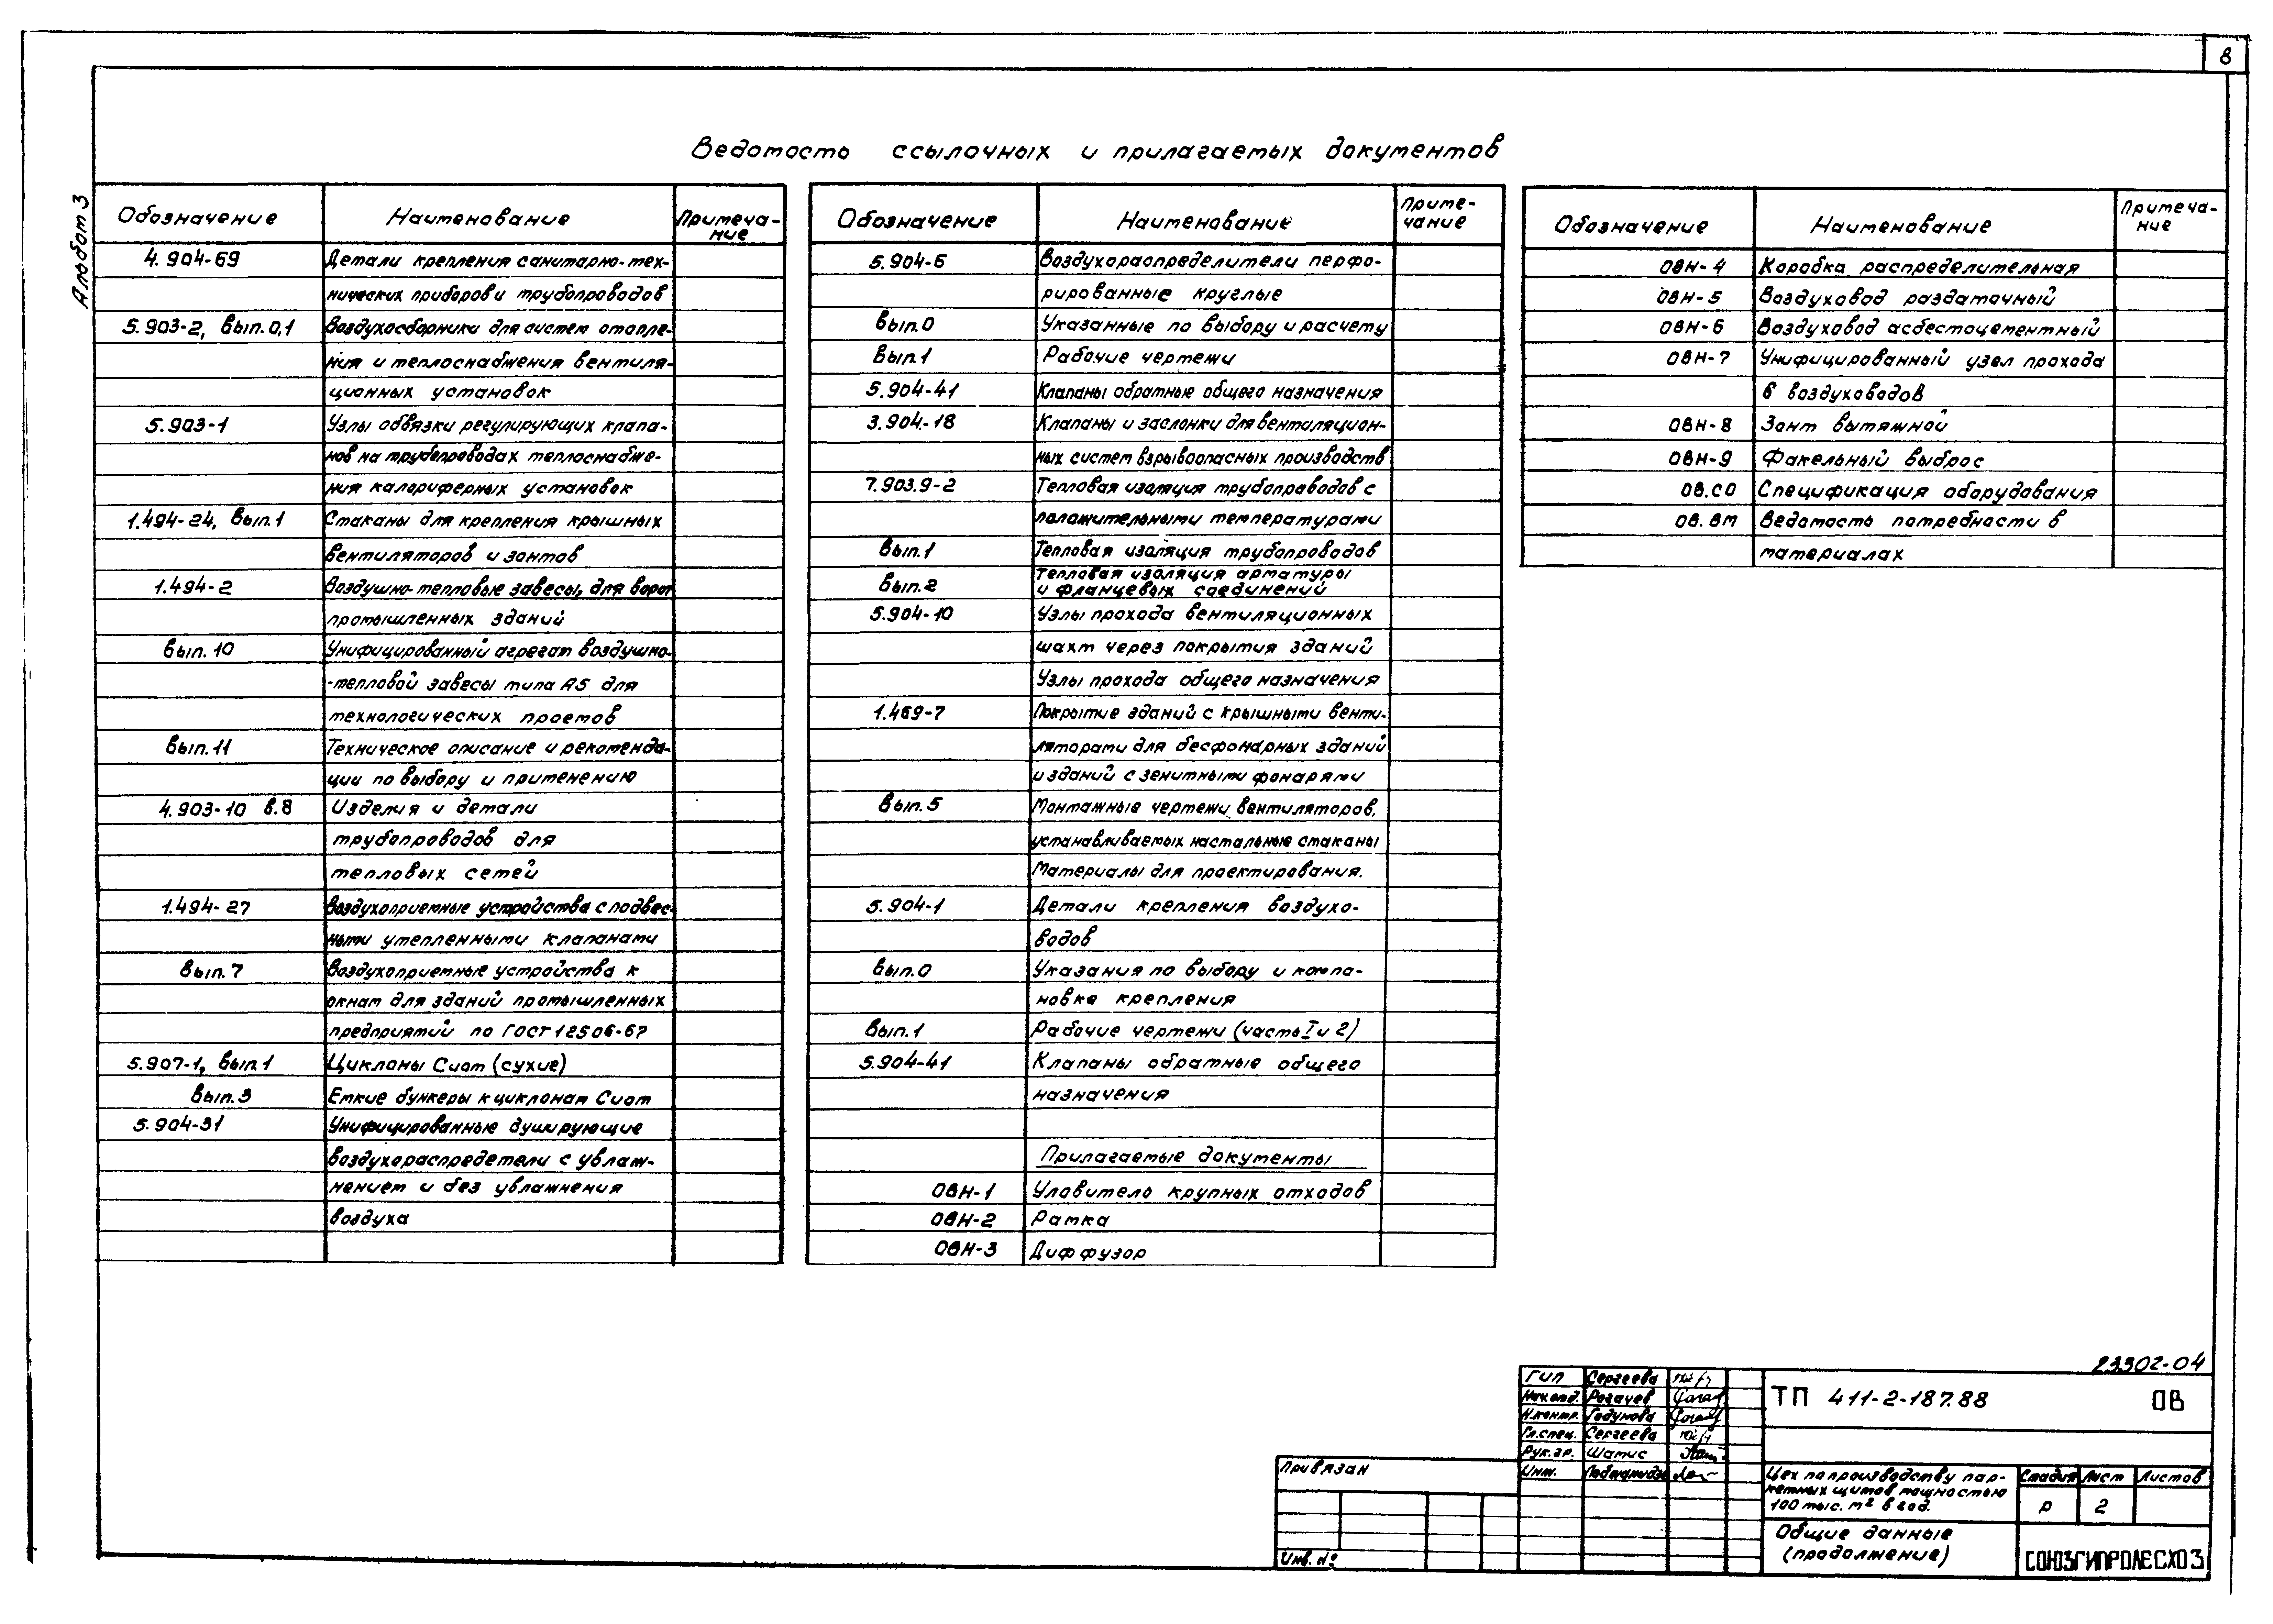 8
Альбом 3
Ведомость ссылочных и прилагаемых документов
Обозначение Наименование Примеча-
ние
4.904-69 Детали крепления санитарно-тех-
нических приборов и трубопроводов
5.903-2, Вып.0,1 Воздухосборники для систем отопле-
ния и теплоснабжения вентиля-
ционных установок
5.903-1 Узлы обвязки регулирующих клапа-
нов на трубопроводах теплоснабже-
ния калориферных установок
1.494-24, Вып.1 Стаканы для крепления крышных
вентиляторов и зонтов
1.494-2 Воздушно-тепловые завесы, для ворот
промышленных зданий
Вып.10 Унифицированный агрегат воздушно-
-тепловой завесы типа А5 для
технологических проемов
Вып.11 Техническое описание и рекоменда-
ции по выбору и применению
4.903-10 в.8 Изделия и детали
трубопроводов для
тепловых сетей
1.494-27 Воздухоприемные устройства с подвес-
ными утепленными клапанами
Вып.7 Воздухоприемные устройства к
окнам для зданий промышленных
предприятий по ГОСТ 12506-67
5.907-1, Вып.1 Циклоны Сиот (сухие)
Вып.3 Емкие бункеры к циклонам Сиот
5.904-31 Унифицированные душирующие
воздухораспредетели с увлаж-
нением и без увлажнения
воздуха
Обозначение Наименование Приме-
чание
5.904-6 Воздухораопределители перфо-
рированные круглые
Вып.0 Указанные по выбору и расчету
Вып.1 Рабочие чертежи
5.904-41 Клапаны обратные общего назначения
3.904-18 Клапаны и заслонки для вентиляцион-
ных систем взрывоопасных производств
7.903.9-2 Тепловая изоляция трубопроводов с
положительными температурами
Вып.1 Тепловая изоляция трубопроводов
Вып.2 Тепловая изоляция арматуры
и фланцевых соединений
5.904-10 Узлы прохода вентиляционных
шахт через покрытия зданий
Узлы прохода общего назначения
1.469-7 Покрытие зданий с крышными венти-
ляторами для бесфонарных зданий
и зданий с зенитными фонарями
Вып.5 Монтажные чертежи вентиляторов,
устанавливаемых настальные стаканы
Материалы для проектирования.
5.904-1 Детали крепления воздухо-
водов
Вып.0 Указания по выбору и компа-
новке крепления
Вып.1 Рабочие чертежи (часть I и 2)
5.904-41 Клапаны обратные общего
назначения
Прилагаемые документы
ОВН-1 Уловитель крупных отходов
ОВН-2 Рамка
ОВН-3 Диффузор
Обозначение Наименование Примеча-
ние
ОВН-4 Коробка распределительная
ОВН-5 Воздуховод раздаточный
ОВН-6 Воздуховод асбестоцементный
ОВН-7 Унифицированный узел прохода
в воздуховодов
ОВН-8 Зонт вытяжной
ОВН-9 Факельный выброс
ОВ.СО Спецификация оборудования
ОВ.ВМ Ведомость потребности в
материалах
23302-04
ГИП Сергеева
Нач.отд. Рогачев
Н.контр. Годунова
Гл.спец. Сергеева
Рук.гр. Шамис
Инж.
ТП 411-2-187.88 ОВ
Цех по производству пар-
кетных щитов мощностью
100 тыс. м² в год.
Стадия Лист Листов
Р 2
Общие данные
(продолжение)
СОЮЗГИПРОЛЕСХОЗ
Привязан
Инв. №